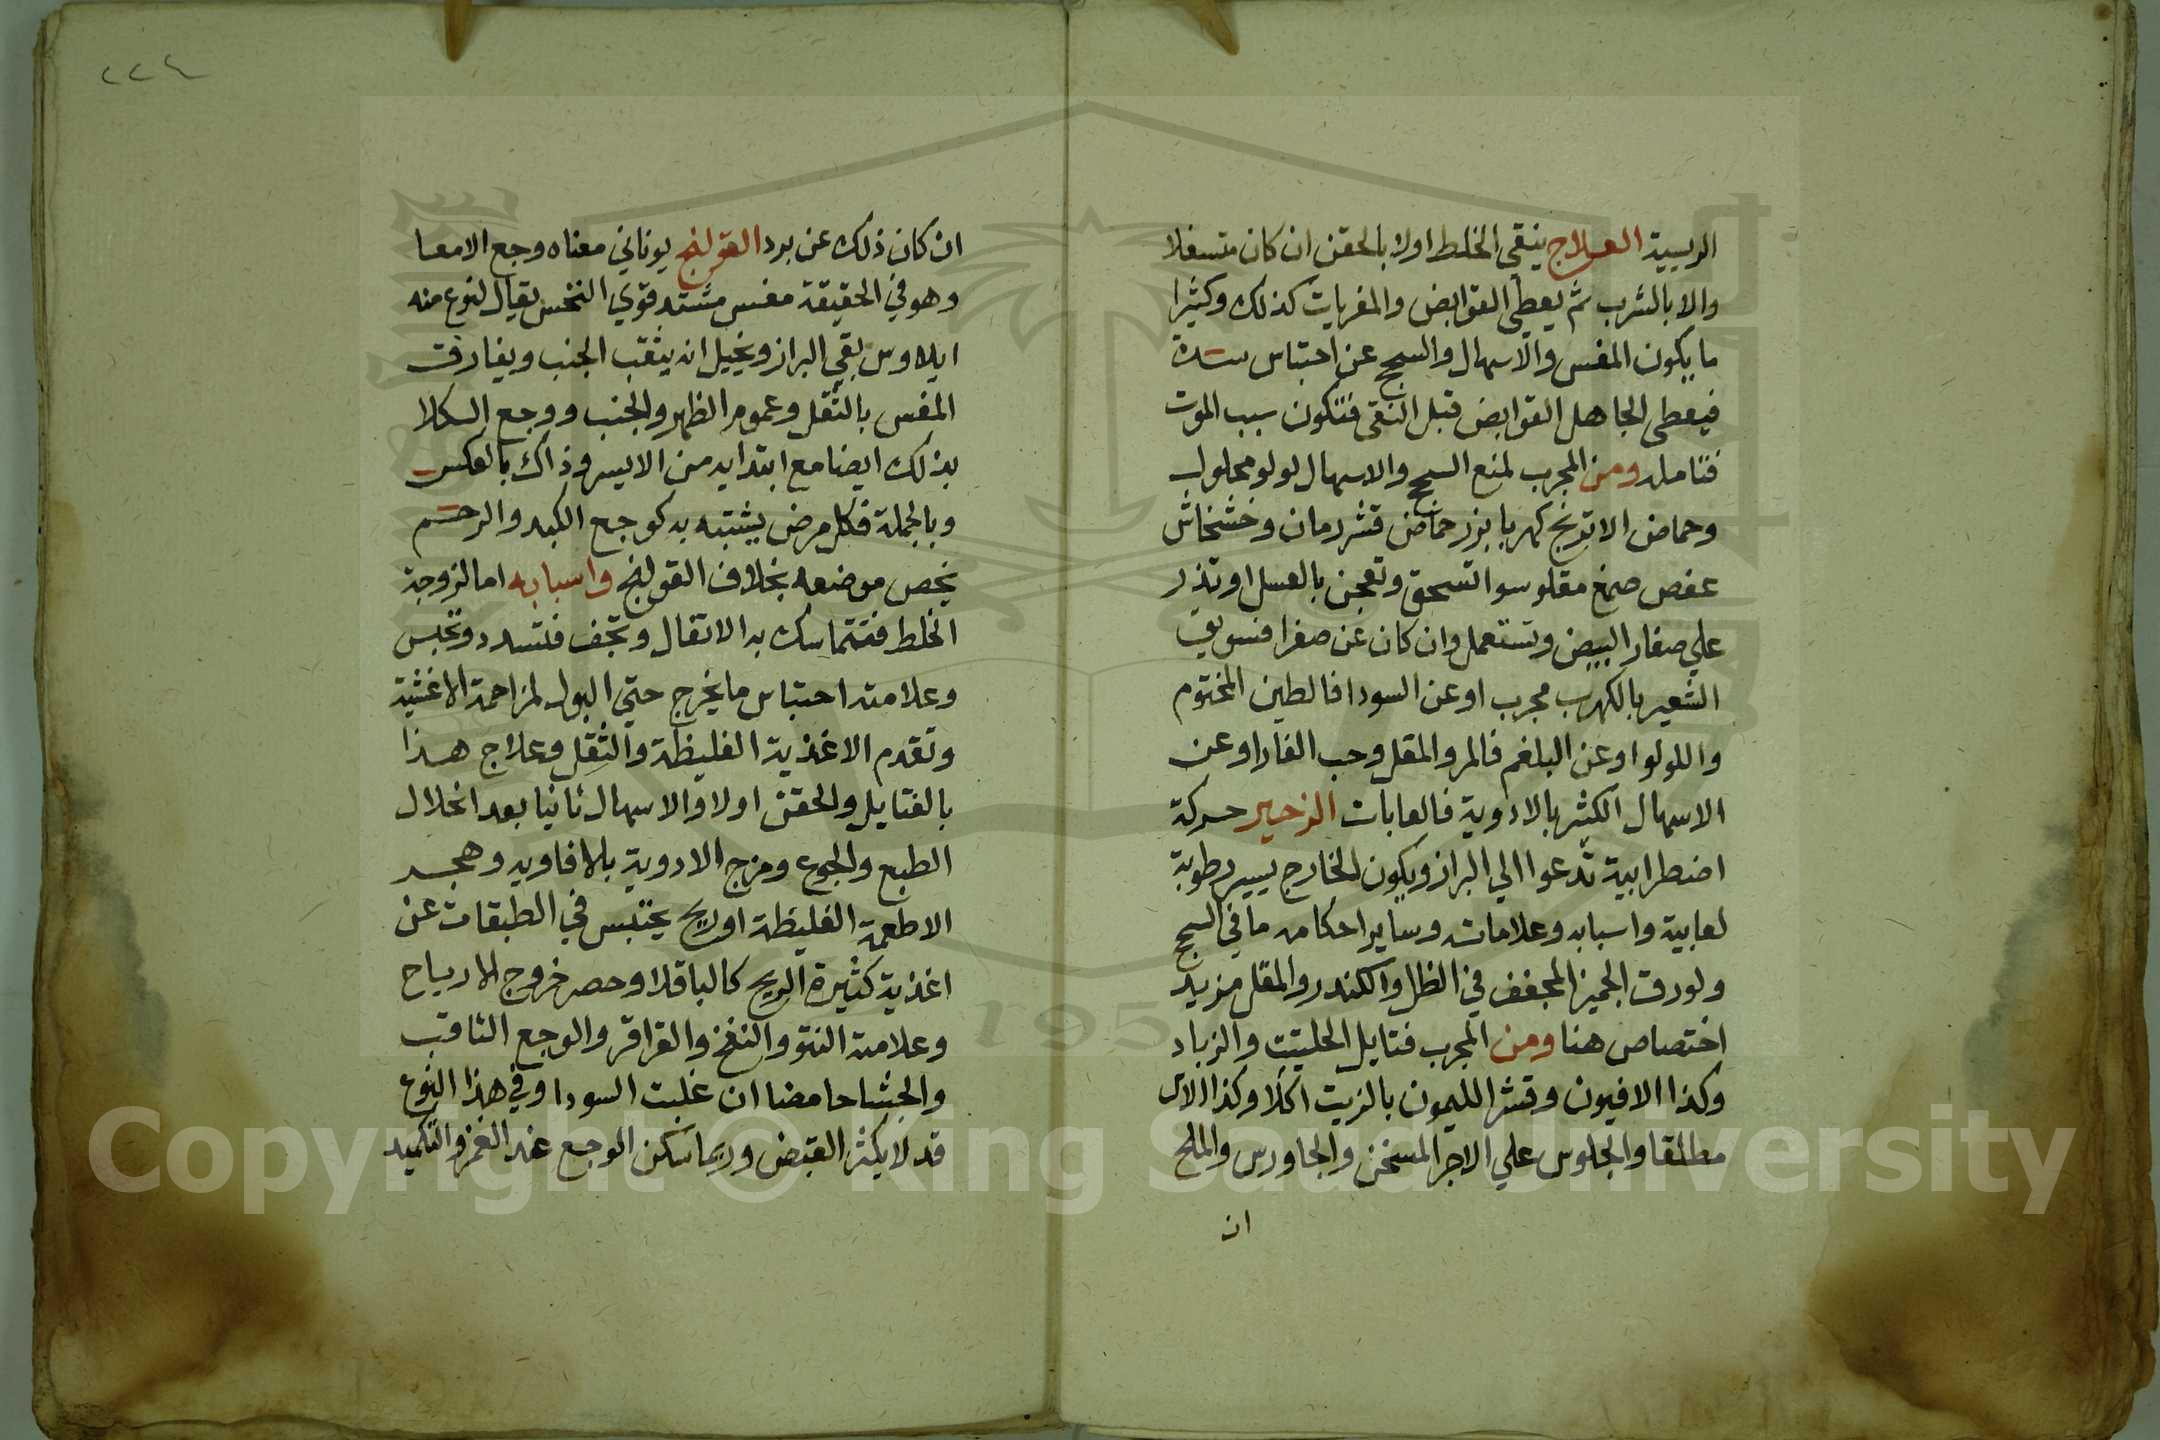 الرييية العلاج ينقي الخلط اولا بالحقن ان كان متسفلا
والا بالشرب ثم يعطي القوابض والمغريات كذلك وكثيرا
ما يكون المغس والاسهال والسحج عن احتباس سدة
فيعطي الجاهل القوابض قبل النقي فتكون سبب الموت
فتامله ومن المجرب لمنع السحج والاسهال لولو محلول
وحماض الاترنج كهربا بزر حماض قشر رمان وخشخاش
عفص صمغ مقلو سوا تسحق وتعجن بالعسل او تذر
علي صفار البيض وتستعمل وان كان عن صفرا فسويق
الشعير بالكهرب مجرب او عن السودا فالطين المختوم
واللولو او عن البلغم فالمر والمقل وحب الغار او عن
الاسهال الكثير بالادوية فالعابات الزحير حركة
اضطرابية تدعوا الي البراز ويكون الخارج يسير رطوبة
لعابية واسبابه وعلاماته وساير احكامه ما في السحج
ولورق الجميز المجفف في الظل والكندر والمقل مزيد
اختصاص هنا ومن المجرب فتايل الحلتيت والزباد
وكذا الافيون وقشر الليمون بالزيت اكلا وكذا الاس
مطلقا والجلوس علي الاجر المسخن والجاورس والملح
ان
٢٢٤
ان كان ذلك عن برد القولنج يوناني معناه وجع الامعا
وهو في الحقيقة مغس مشتد قوي النخس يقال لنوع منه
ايلاوس بقي البراز ويخيل انه يثقب الجنب ويفارق
المغس بالثقل وعموم الظهر والجنب ووجع الكلا
بذلك ايضا مع ابتدايه من الايسر وذاك بالعكس
وبالجملة فكل مرض يشتبه به كوجع الكبد والرحم
يخص موضعه بخلاف القولنج واسبابه اما لزوجة
الخلط فتتماسك به الاثقال وتجف فتسدد وتحبس
وعلامته احتباس ما يخرج حتي البول لمزاحمة الاغشية
وتقدم الاغذية الغليظة والثقل وعلاج هذا
بالفتايل والحقن اولا والاسهال ثانيا بعد انحلال
الطبع والجوع ومزج الادوية بالافاويه وهجر
الاطعمة الغليظة او ريح يحتبس في الطبقات عن
اغذية كثيرة الريح كالباقلا وحصر خروج الارياح
وعلامته النتو والنفخ والقراقر والوجع الثاقب
والجشا حامضا ان غلبت السودا وفي هذا النوع
قد لا يكثر القبض وربما سكن الوجع عند الغمز والتكميد
1957
Copyright © King Saud University